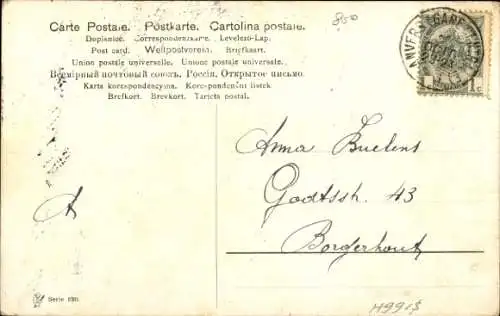 Carte Postale. Postkarte. Cartolina postale.
Dopisnice. Correspondenzkarte. Levelező-Lap.
Post card. Weltpostverein. Briefkaart.
Union postale universelle. Unione postale universale.
Всемірный почтовый союзъ. Россія. Открытое письмо.
Karta korespondencyjna. Korespondenční lístek.
Brefkort. Brevkort. Tarjeta postal.
850
ANVERS
1 c
Anna Buelens
Godtsstr. 43
Borgerhout
A
Serie 630.
H991$